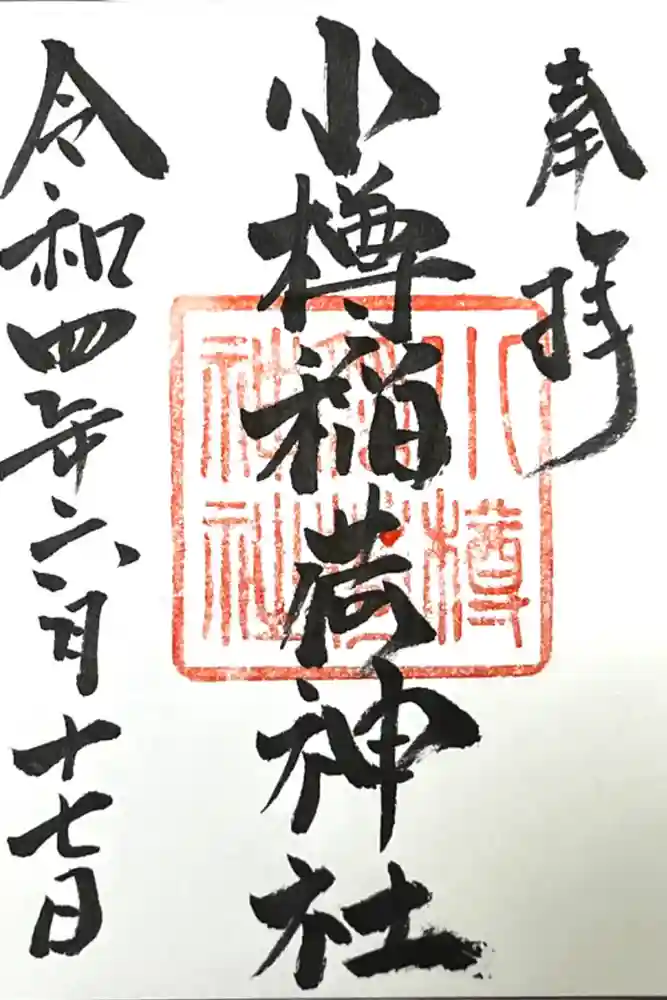 奉拝
小樽稲荷神社
小樽
稲荷
神社
令和四年六月十七日